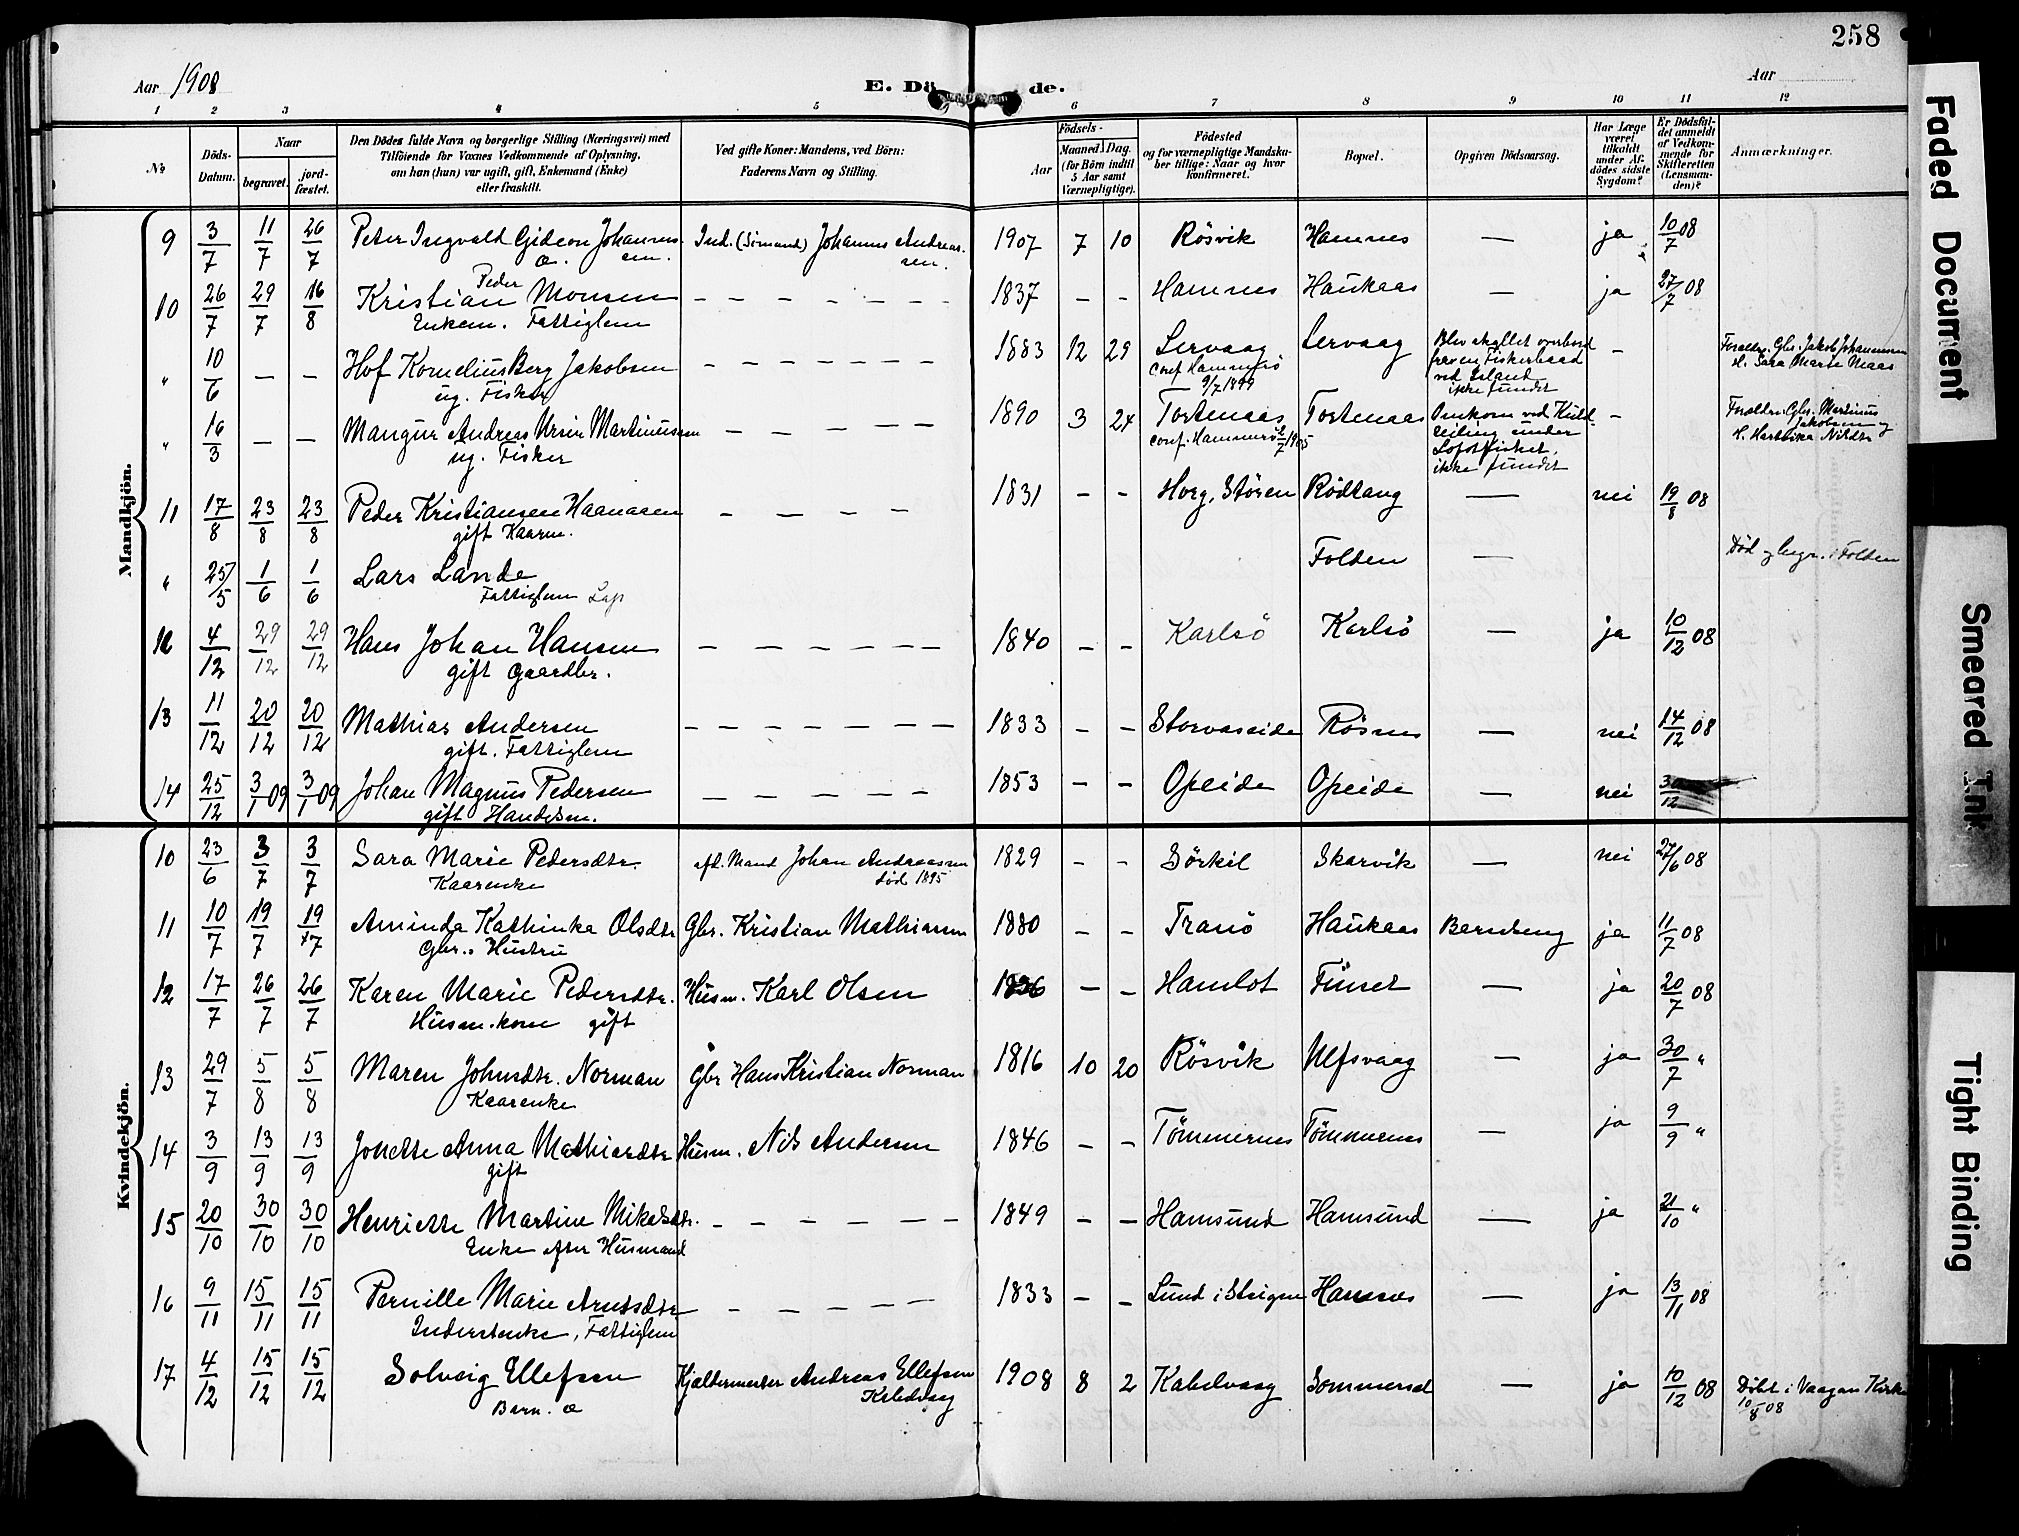 258
Aar 1908
E. Dö de.
Aar
1 2 3 4 5 6 7 8 9 10 11 12
№
Döds-
Datum.
Naar
begravet.
jord-
fæstet.
Den Dödes fulde Navn og borgerlige Stilling (Næringsvei) med
Tilföiende for Voxnes Vedkommende af Oplysning,
om han (hun) var ugift, gift, Enkemand (Enke)
eller fraskilt.
Ved gifte Koner: Mandens, ved Börn:
Faderens Navn og Stilling.
Födsels-
Aar
Maaned
Dag.
(for Börn indtil
5 Aar samt
Værnepligtige).
Födested
og for værnepligtige Mandska-
ber tillige: Naar og hvor
konfirmeret.
Bopæl.
Opgiven Dödsaarsag.
Har Læge
været
tilkaldt
under Af-
dödes sidste
Sygdom?
Er Dödsfal-
det anmeldt
af Vedkom-
mende for
Skifteretten
(Lensman-
den)?
Anmærkninger.
Mandkjön.
9 3/7 11/7 26/7 Peter Ingvald Gideon Johannes- Ind. (Sömand) Johannes Andreas- 1907 7 10 Rösvik Hamnes — ja 10/7 08
æ. sen. sen.
Peder
10 26/7 29/7 16/8 Kristian Monsen – – – – – – – 1837 – – Hamnes Haukaas — ja 27/7 08
Enkem. Fattiglem
" 10/6 — — Hof Kornelius Berg Jakobsen – – – – – – – 1883 12 29 Lervaag Lervaag Blev skyllet overbord – Foræld. Gbr. Jakob Johannesen
ug. Fisker conf Hammerö fra en Fiskerbaad H. Sara Marie Maas
9/7 1899 ved Island
ikke fundet
" 16/3 — — Mangur Andreas Ursin Martinussen – – – – – – 1890 3 24 Tortenaas Tortenaas Omkom ved Kuld- – Foræld. Gbr. Martinus
ug. Fisker conf. Hammerö 2/7 1905 seiling under Jakobsen og
Lofotfisket, H. Hartvika Nilsdtr
ikke fundet
11 17/8 23/8 23/8 Peder Kristiansen Haanasen – – – – 1831 – – Horg, Stören Rödtang — nei 19/8 08
gift Kaarm.
" 25/5 1/6 1/6 Lars Lande Folden — Död og begr. i Folden
Fattiglem Lap
12 4/12 29/12 29/12 Hans Johan Hansen – – – – – – – 1840 – – Karlsö Karlsö — ja 10/12 08
gift Gaardbr.
13 11/12 20/12 20/12 Mathias Andersen – – – – – – – 1833 – – Storvaseide Rösnes — nei 14/12 08
gift. Fattiglem
14 25/12 3/1 09 3/1 09 Johan Magnus Pedersen – – – – – 1853 – – Opeide Opeide — nei 30/12
gift Handelsm.
Kvindekjön.
10 23/6 3/7 3/7 Sara Marie Pedersdtr. afd. Mand Johan Andreassen 1829 – – Sörkil Skarvik — nei 27/6 08
Kaarenke död 1895
11 10/7 19/7 19/7 Aminda Kathinka Olsdtr Gbr. Kristian Mathiassen 1880 – – Tranö Haukaas Barnseng ja 11/7 08
Gbr.s Hustru
12 17/7 26/7 26/7 Karen Marie Pedersdtr. Husm. Karl Olsen 1836 – – Hamlot Finset — ja 20/7 08
Husm.kone gift
13 29/7 5/8 5/8 Maren Johnsdtr. Norman Gbr Hans Kristian Norman 1816 10 20 Rösvik Ulfsvaag — ja 30/7 "
Kaarenke
14 3/9 13/9 13/9 Jonette Anna Mathiasdtr Husm. Nils Andersen 1846 – – Tömmernes Tömmernes — ja 9/9 "
gift
15 20/10 30/10 30/10 Henriette Martine Mikalsdtr. – – – – – – – 1849 – – Hamsund Hamsund — ja 21/10 "
Enke efter Husmand
16 9/11 15/11 15/11 Pernille Marie Arntsdtr – – – – – 1833 – – Lund i Steigen Hamnes — ja 13/11 08
Inderstenke, Fattiglem
17 4/12 15/12 15/12 Solveig Ellefsen Kjældermester Andreas Ellefsen 1908 8 2 Kabelvaag Sommersel — ja 10/12 08 Döbt i Vaagan Kirke
Barn. æ Kabelvaag 10/8 08
Faded Document
Smeared Ink
Tight Binding